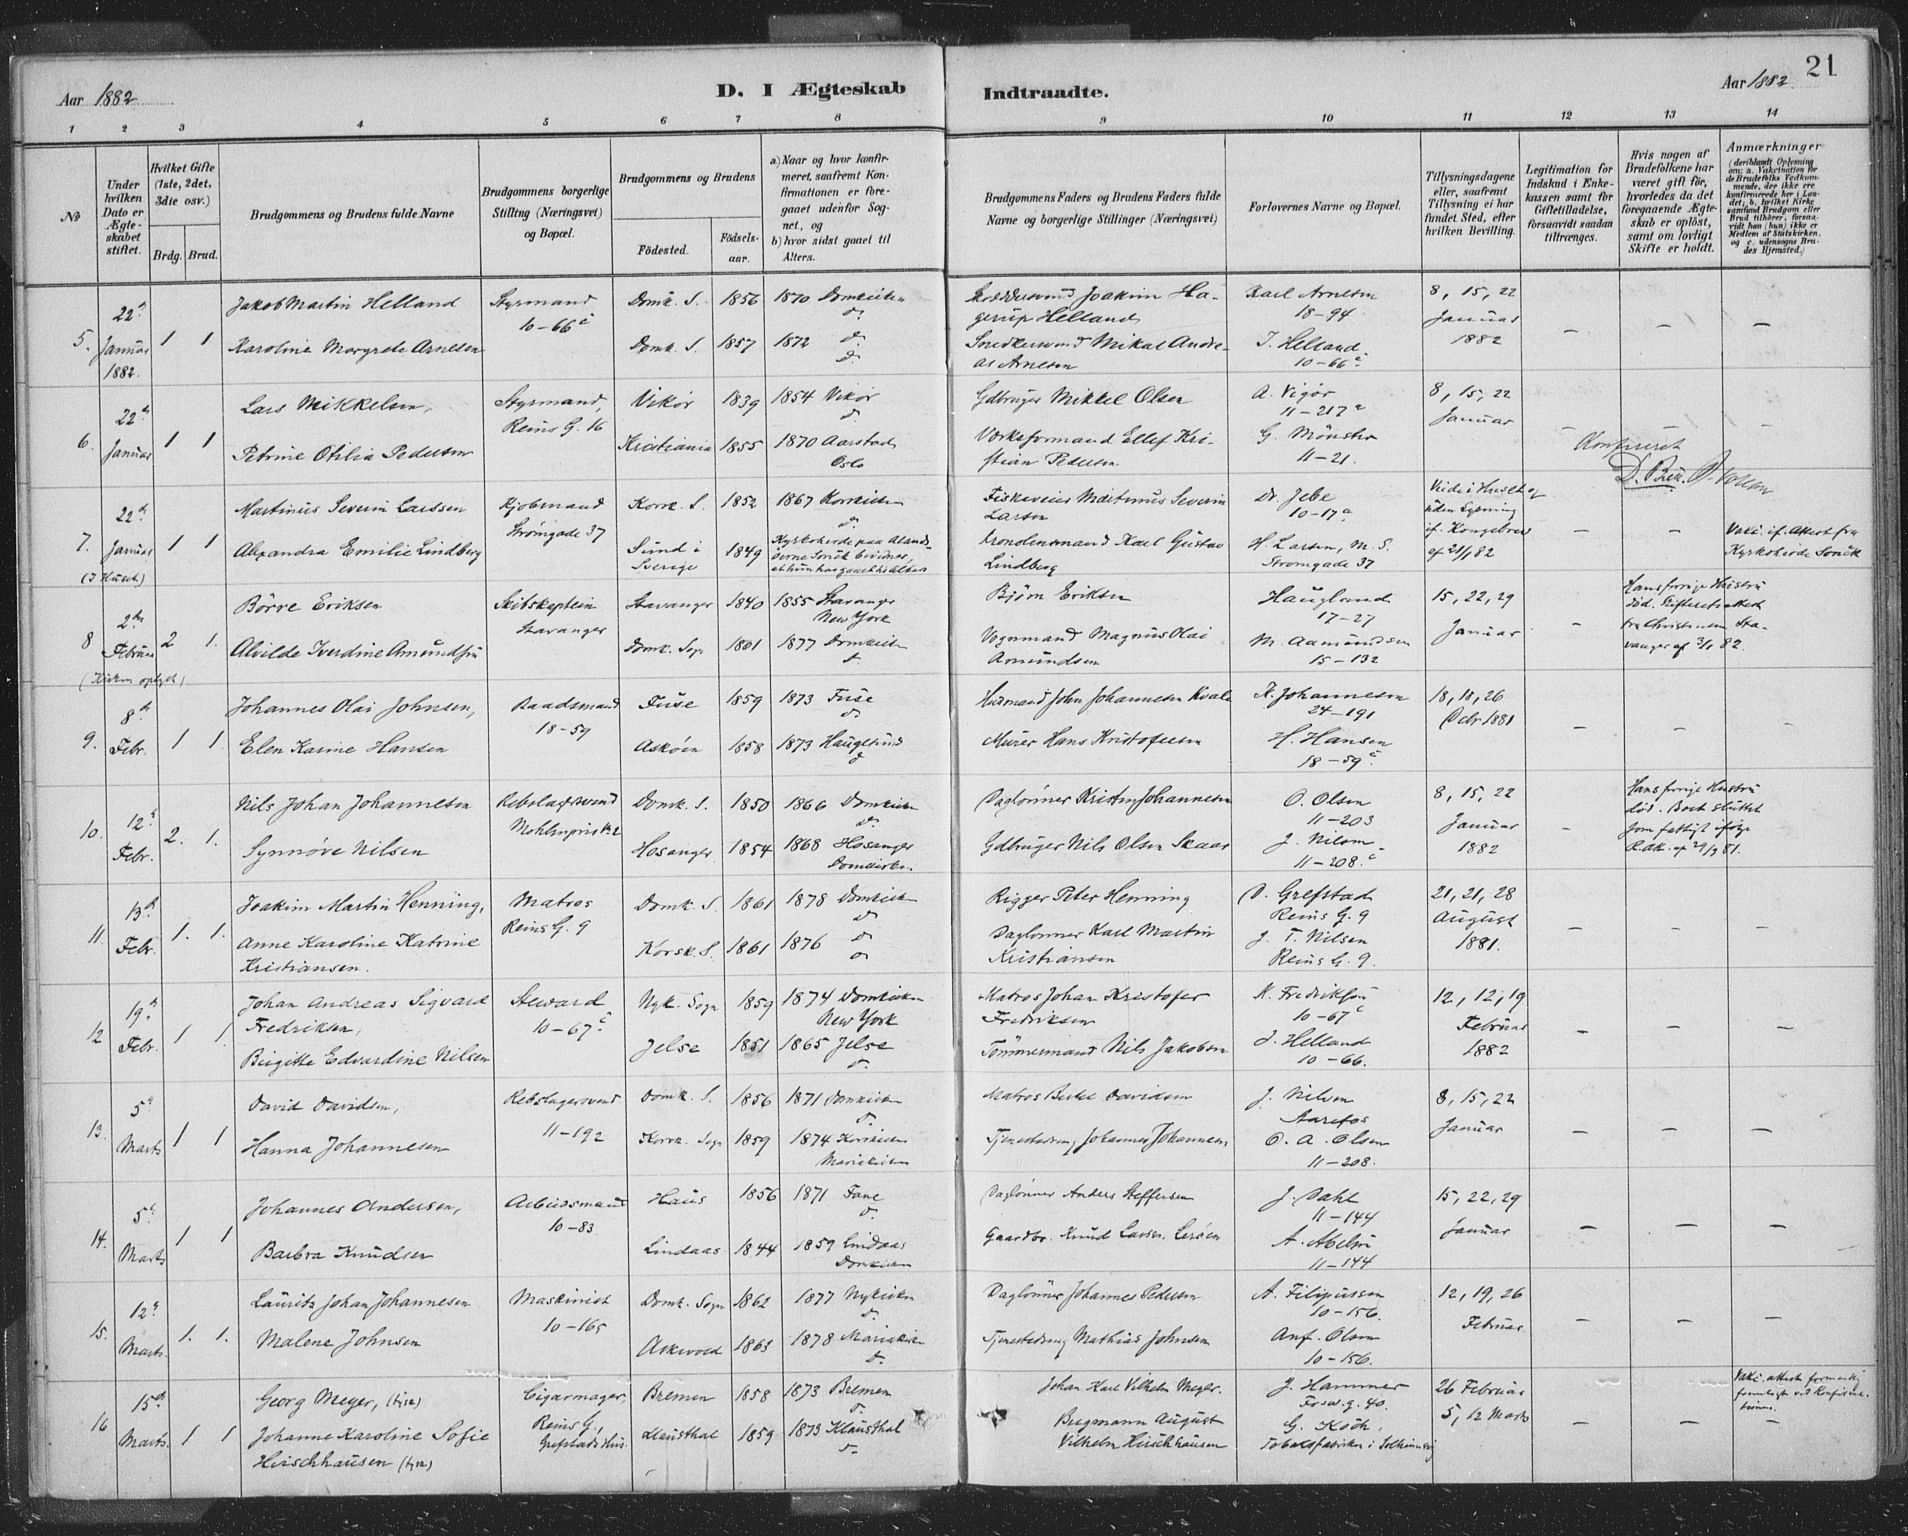 21
Aar 1882
D. I Ægteskab Indtraadte.
Aar 1882
1 2 3 4 5 6 7 8 9 10 11 12 13 14
No
Under hvilken Dato er Ægteskabet stiftet.
Hvilket Gifte (1ste, 2det, 3die osv.)
Brdg. Brud.
Brudgommens og Brudens fulde Navne
Brudgommens borgerlige Stilling (Næringsvei) og Bopæl.
Brudgommens og Brudens
Födested.
Födselsaar.
a) Naar og hvor konfirmeret, saafremt Konfirmationen er foregaaet udenfor Sognet, og
b) hvor sidst gaaet til Alters.
Brudgommens Faders og Brudens Faders fulde Navne og borgerlige Stillinger (Næringsvei)
Forlovernes Navne og Bopæl.
Tillysningsdagene eller, saafremt Tillysning ei har fundet Sted, efter hvilken Bevilling.
Legitimation for Indskud i Enkekassen samt for Giftetilladelse, forsaavidt saadan tiltrænges.
Hvis nogen af Brudefolkene har været gift för, hvorledes da det foregaaende Ægteskab er oplöst, samt om lovligt Skifte er holdt.
Anmærkninger
(deriblandt Oplysning om: a. Vakcination for de Brudefolks Vedkommende, der ikke ere konfirmerede her i Landet; b. hvilket Kirkesamfund Brudgom eller Brud tilhörer, forsaavidt han (hun) ikke er Medlem af Statskirken, og c. udensogns Brudes Hjemsted.)
5. 22d Januar 1882. 1 1
Jakob Martin Helland
Styrmand 10-66c
Domk. S. 1856 1870 Domkirken do
Skræddersvend Joakim Hagerup Helland
Karl Arnesen 18-94
8, 15, 22 Januar 1882
Karoline Margrete Arnesen
Domk. S. 1857 1872 do do
Snedkersvend Mikal Andreas Arnesen
J. Helland 10-66c
6. 22d Januar 1 1
Lars Mikkelsen,
Styrmand, Reins G. 16
Vikör 1839 1854 Vikör do
Gdbruger Mikkel Olsen
A. Vigör 11-217a
8, 15, 22 Januar
Petrine Otilia Pedersen
Kristiania 1855 1870 Aarstad Oslo
Værksformand Ellef Kristian Pedersen
G. Mönster 11-21.
Konfereret
7. 22d Januar (I Huset) 1 1
Martinus Severin Larssen
Kjöbmand Strömgade 37
Korsk. S. 1852 1867 Korskirken do
Fiskeveier Martinus Severin Larsen
Dr. Jebe 10-17a
Viede i Huset og uden Lysning if. Kongebrev af 21/1 82
Alexandra Emilie Lindberg
Sund i Sverige 1849
Kronolensmand Karl Gustav Lindberg
H. Larsen, M. S. Strömgade 37
Vakc. if. Attest fra Kyrkoherde
8 2den Februar (Kirken oplyst) 2 1.
Börre Eriksen
Skibskaptein Stavanger
Stavanger 1840 1855 Stavanger New York
Björn Eriksen
Haugland 17-27
15, 22, 29 Januar
Hans forrige Hustru död. Skifteretsattest fra Christensen Stavanger af 3/1 82.
Alvilde Iverdine Amundsen
Domk. Sogn 1861 1877 Domkirken do
Vognmand Magnus Olai Amundsen
M. Aamundsen 15-132
9. 8d Febr. 1 1.
Johannes Olai Johnsen,
Baadsmand 18-59
Fuse 1859 1873 Fuse do
Husmand John Johannesen Kvale
K. Johannesen 24-191
18, 18, 26 Debr 1881
Elen Karine Hansen
Asköen 1858 1873 Haugesund do
Murer Hans Kristofersen
H. Hansen 18-59c.
10. 12d Febr. 2. 1.
Nils Johan Johannesen
Rebslagersvend Möhlenpris
Domk. S. 1850 1866 Domkirken do
Daglönner Kristen Johannesen
O. Olsen 11-203
8, 15, 22 Januar 1882
Hans forrige Hustru död. Boet sluttet som fattigt ifölge af 29/3 81.
Synnöve Nilsen
Hosanger 1854 1868 Hosanger Domkirken.
Gdbruger Nils Olsen Skaar
J. Nilsen 11-208.c
11. 13d Febr. 1. 1.
Joakim Martin Henning,
Matros Reins G. 9
Domk. S. 1861 1878 Domkirken do
Rigger Peter Henning
D. Grefstad Reins G. 9
21, 21, 28 August 1881.
Anne Karoline Katrine Kristiansen.
Korsk. S. 1861 1876 do do
Daglönner Karl Martin Kristiansen
J. T. Nilsen Reins G. 9.
12 19d Febr. 1 1.
Johan Andreas Sigvard Fredriksen,
Steward 10-67c
Nyk. Sogn 1859 1874 Domkirken New York
Matros Johan Kristofer Fredriksen
K. Fredriksen 10-67c
12, 12, 19 Februar 1882
Birgitte Edvardine Nilsen
Jelse 1851 1865 Jelse do
Tömmermand Nils Jakobsen
J. Helland 10-66.
13. 5d Marts 1 1
David Davidsen,
Rebslagersvend 11-192
Domk. S. 1856 1871 Domkirken do
Matros Bertel Davidsen
J. Nilsen
8, 15, 22 Januar
Hanna Johannesen
Korsk. Sogn 1859 1874 Korskirken Mariekirken
Tjenestedreng Johannes Johannesen
O. A. Olsen 11-208.
14. 5d Marts 1 1
Johannes Andersen,
Arbeidsmand 10-83
Haus 1856 1871 Fane do
Daglönner Anders Steffensen
J. Dahl 11-144
15, 22, 29 Januar
Barbra Knudsen
Lindaas 1844 1859 Lindaas Domkirken
Gaardbr. Knud Larsen Leröen
A. Abelsen 11-144
15. 12d Marts. 1. 1.
Laurits Johan Johannesen
Maskinist 10-165
Domk. Sogn 1862 1877 Nykirken do
Daglönner Johannes Pedersen
A. Filipussen 10-156.
12, 19, 26 Februar
Malene Johnsen
Askevold 1863 1878 Mariakirken do
Tjenestedreng Mathias Johnsen
Anf. Olsen 10-156.
16 15d Marts. 1 1
Georg Meyer,
Cigarmager, Reins G., Grefstads Hus.
Bremen 1858 1873 Bremen do
Johan Karl Vilhelm Meyer.
J. Hammer
26 Februar 5, 12 Marts
Johanne Karoline Sofie Hirschhausen
Klausthal 1859 1873 Klausthal do
Bergmann August Vilhelm Hirschhausen
G. Koch, Tobaksfabriken i Solheimsvig